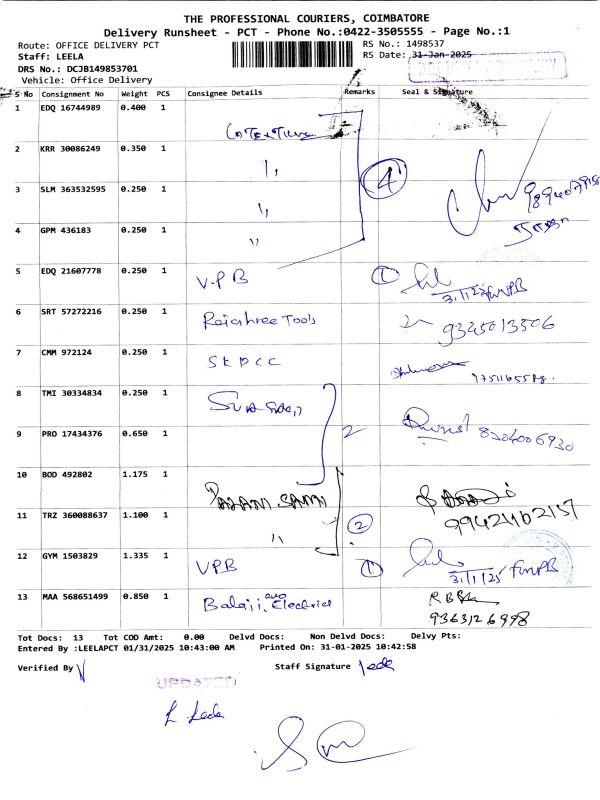 THE PROFESSIONAL COURIERS, COIMBATORE
Delivery Runsheet - PCT - Phone No.:0422-3505555 - Page No.:1
Route: OFFICE DELIVERY PCT
RS No.: 1498537
Staff: LEELA
RS Date: 31-Jan-2025
DRS No.: DCJB149853701
Vehicle: Office Delivery
S No Consignment No Weight PCS Consignee Details Remarks Seal & Signature
1 EDQ 16744989 0.400 1
2 KRR 30086249 0.350 1 "
3 SLM 363532595 0.250 1 " 4
4 GPM 436183 0.250 1 "
5 EDQ 21607778 0.250 1 V.P.B 1 31/1/25
6 SRT 57272216 0.250 1 Rajshree Tools 9345013506
7 CMM 972124 0.250 1 SKPCC
8 TMI 30334834 0.250 1
9 PRO 17434376 0.650 1 2
10 BOD 492802 1.175 1 PALANI SAMI
11 TRZ 360088637 1.100 1 " 2 9942402137
12 GYM 1503829 1.335 1 VPB 1 31/1/25
13 MAA 568651499 0.850 1 Balaji Electrical 9363126998
Tot Docs: 13 Tot COD Amt: 0.00 Delvd Docs: Non Delvd Docs: Delvy Pts:
Entered By :LEELAPCT 01/31/2025 10:43:00 AM Printed On: 31-01-2025 10:42:58
Verified By
Staff Signature Leela
UPDATED
L Leela